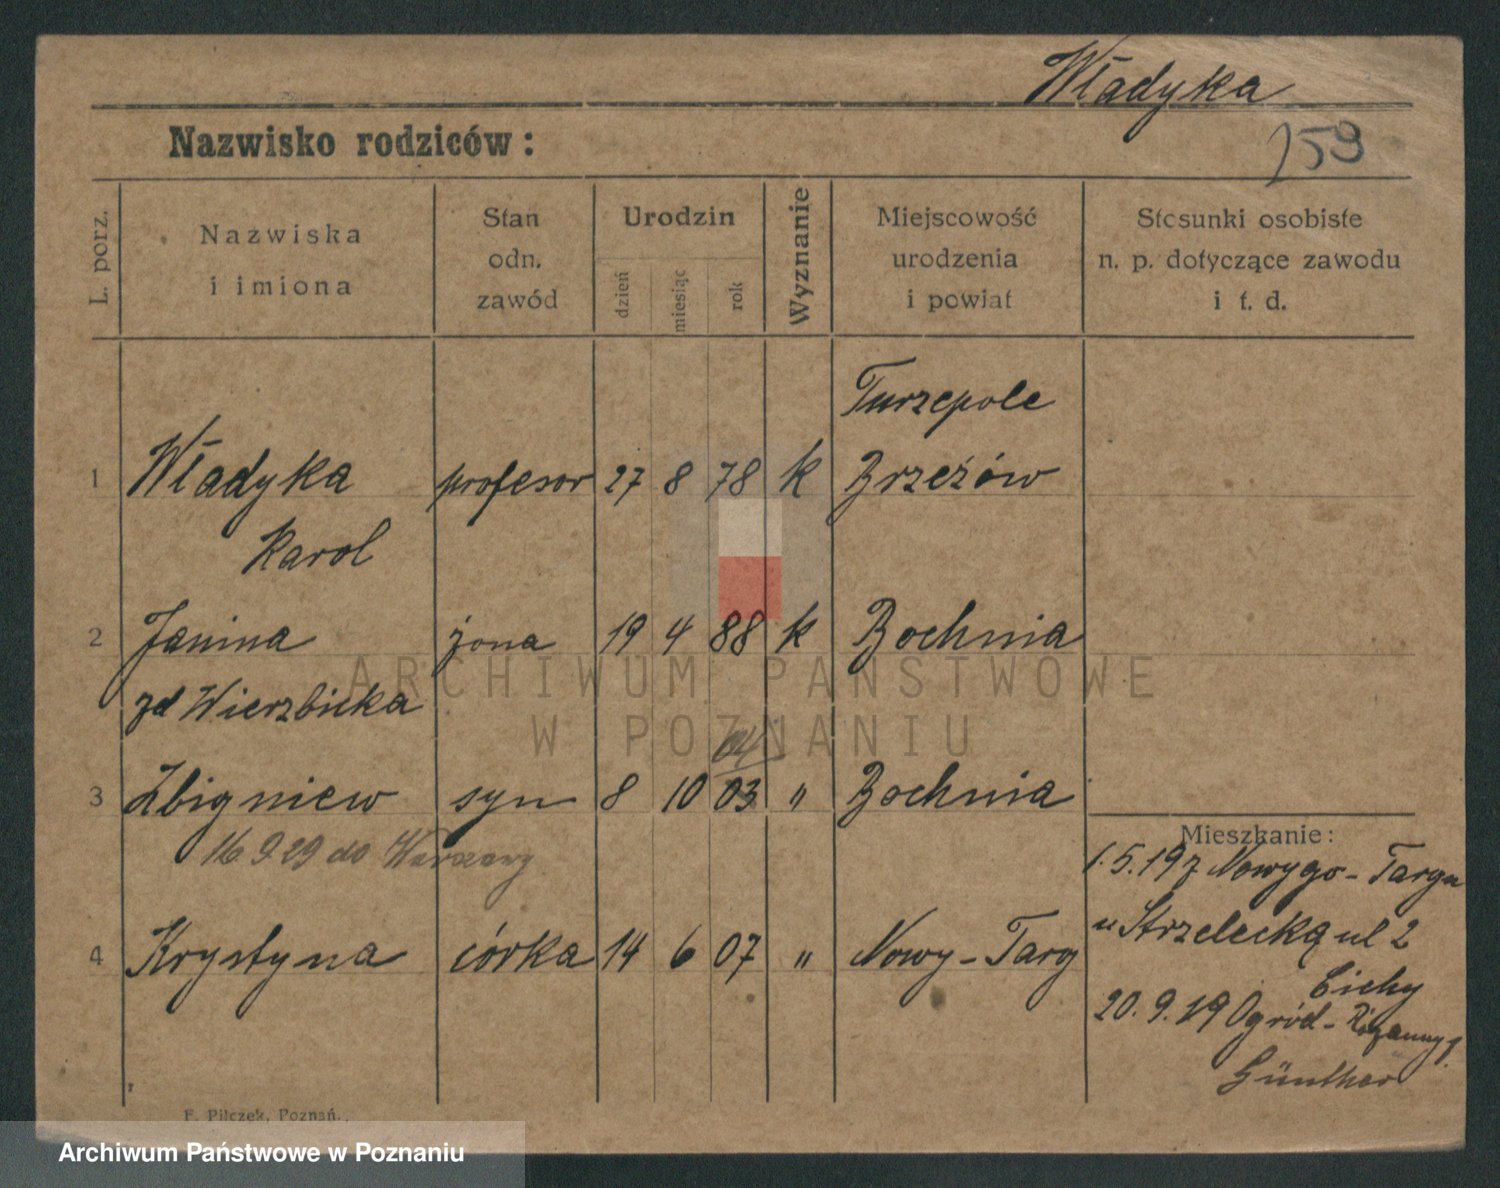 Władyka
Nazwisko rodziców:
159
L. porz.
Nazwiska
i imiona
Stan
odn.
zawód
Urodzin
dzień
miesiąc
rok
Wyznanie
Miejscowość
urodzenia
i powiat
Stosunki osobiste
n. p. dotyczące zawodu
i t. d.
Turzepole
1 Władyka profesor 27 8 78 k Brzeżów
Karol
2 Janina żona 19 4 88 k Bochnia
zd Wierzbicka
04
3 Zbigniew syn 8 10 03 " Bochnia
16 9 29 do Warszawy
4 Krystyna córka 14 6 07 " Nowy-Targ
Mieszkanie:
1.5.19 z Nowygo-Targu
u Strzelecką ul 2
Cichy
20.9.19 Ogród-
Günther
F. Pilczek, Poznań.
ARCHIWUM PAŃSTWOWE
W POZNANIU
Archiwum Państwowe w Poznaniu